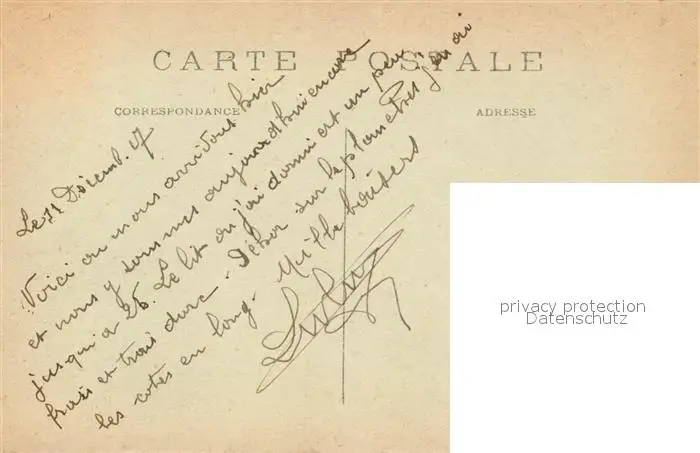 CARTE POSTALE
CORRESPONDANCE
ADRESSE
Le 11 Décemb. 17
Voici ou nous arrivons hier
et nous y sommes aujourd'hui encore
jusqu'a 26. Le lit ou j'ai dormi est un peu
frais et trais dure. Dehor sur la planches j'en ai
les cotés en long. Mille baisers
privacy protection
Datenschutz